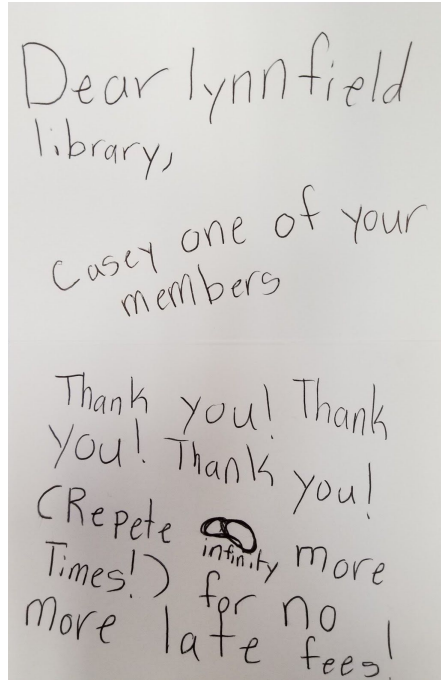 Dear lynnfield
library,
Casey one of your
members
Thank you! Thank
you! Thank you!
(Repete ∞ more
infinity
Times!) for no
more late fees!